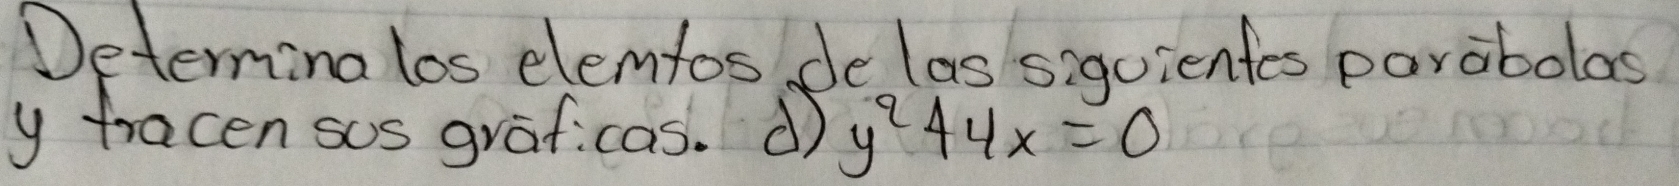 Determina los elemtos de las siguientes parábolas
y tracen sus gráficas. d) y²+4x=0